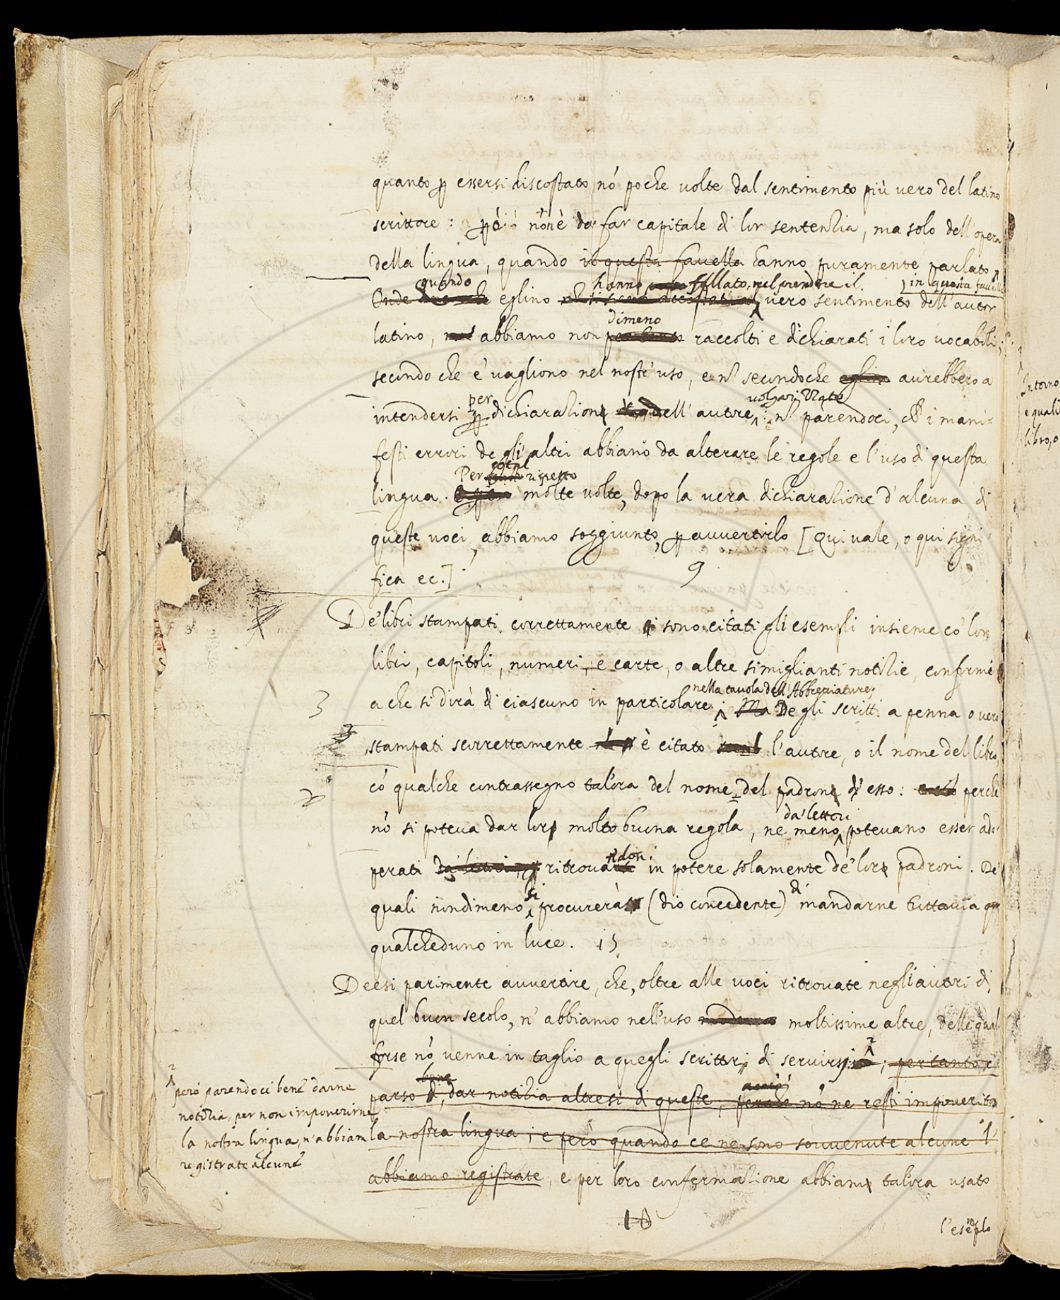 quanto p essersi discostato nō poche volte dal sentimento più vero del latino
scrittore: però nōn è da far capitale di lor sentenzia, ma solo dell'opera
della lingua, quando in questa favella hanno puramente parlato
quando hanno fallato nel prendere il, in questa favella
Onde eglino vero sentimento dell'autor
dimeno
latino, abbiamo non raccolti e dichiarati i loro vocaboli,
secondo che e' vagliono nel nostr'uso, e nō secondoche eglino avrebbero a
per volgarizzato
intendersi p dichiarazione dell'autore: nō parendoci, che i mani-
festi errori de gli altri abbiano da alterare le regole e l'uso di questa
Per rispetto
lingua. molte volte, dopo la vera dichiarazione d'alcuna di
queste voci, abbiamo soggiunto, p avvertirlo [Qui vale, o qui signi
fica ec.] 9
De' libri stampati correttamente si sono citati gli esempli insieme co' lor
libri, capitoli, numeri, e carte, o altre simiglianti notizie, conforme
nella tavola dell'Abbreviature
3 a che si dirà di ciascuno in particolare; Ma De gli scritti a penna o vero
stampati scorrettamente è citato l'autore, o il nome del libro
2 cō qualche contrassegno talora del nome del padron d'esso: perchè
da' lettori
nō si poteva dar lor molto buona regola, ne meno potevano esser ado-
ndon
perati da' lettori, ritrova in potere solamente de' lor padroni. De'
si di
quali nondimeno procurerà (dio concedente) mandarne tuttavia
qualcheduno in luce. 15
Deesi parimente avvertire, che, oltre alle voci ritrovate negli autori di
quel buon secolo, n'abbiamo nell'uso moderno moltissime altre, delle qual
forse nō venne in taglio a quegli scrittori di servirsi; pertanto ci
bene acciò
parso di dar notizia altresì di queste, perchè nō ne resti impoverita
la nostra lingua; e però quando ce ne sono sovvenute alcune l'
abbiamo registrate, e per loro confermazione abbiamo talora usato
10
l'esēplo
però parendoci bene darne
notizia, per non impoverirne
la nostra lingua, n'abbiam
registrate alcune
intorno
e quali
libro, o